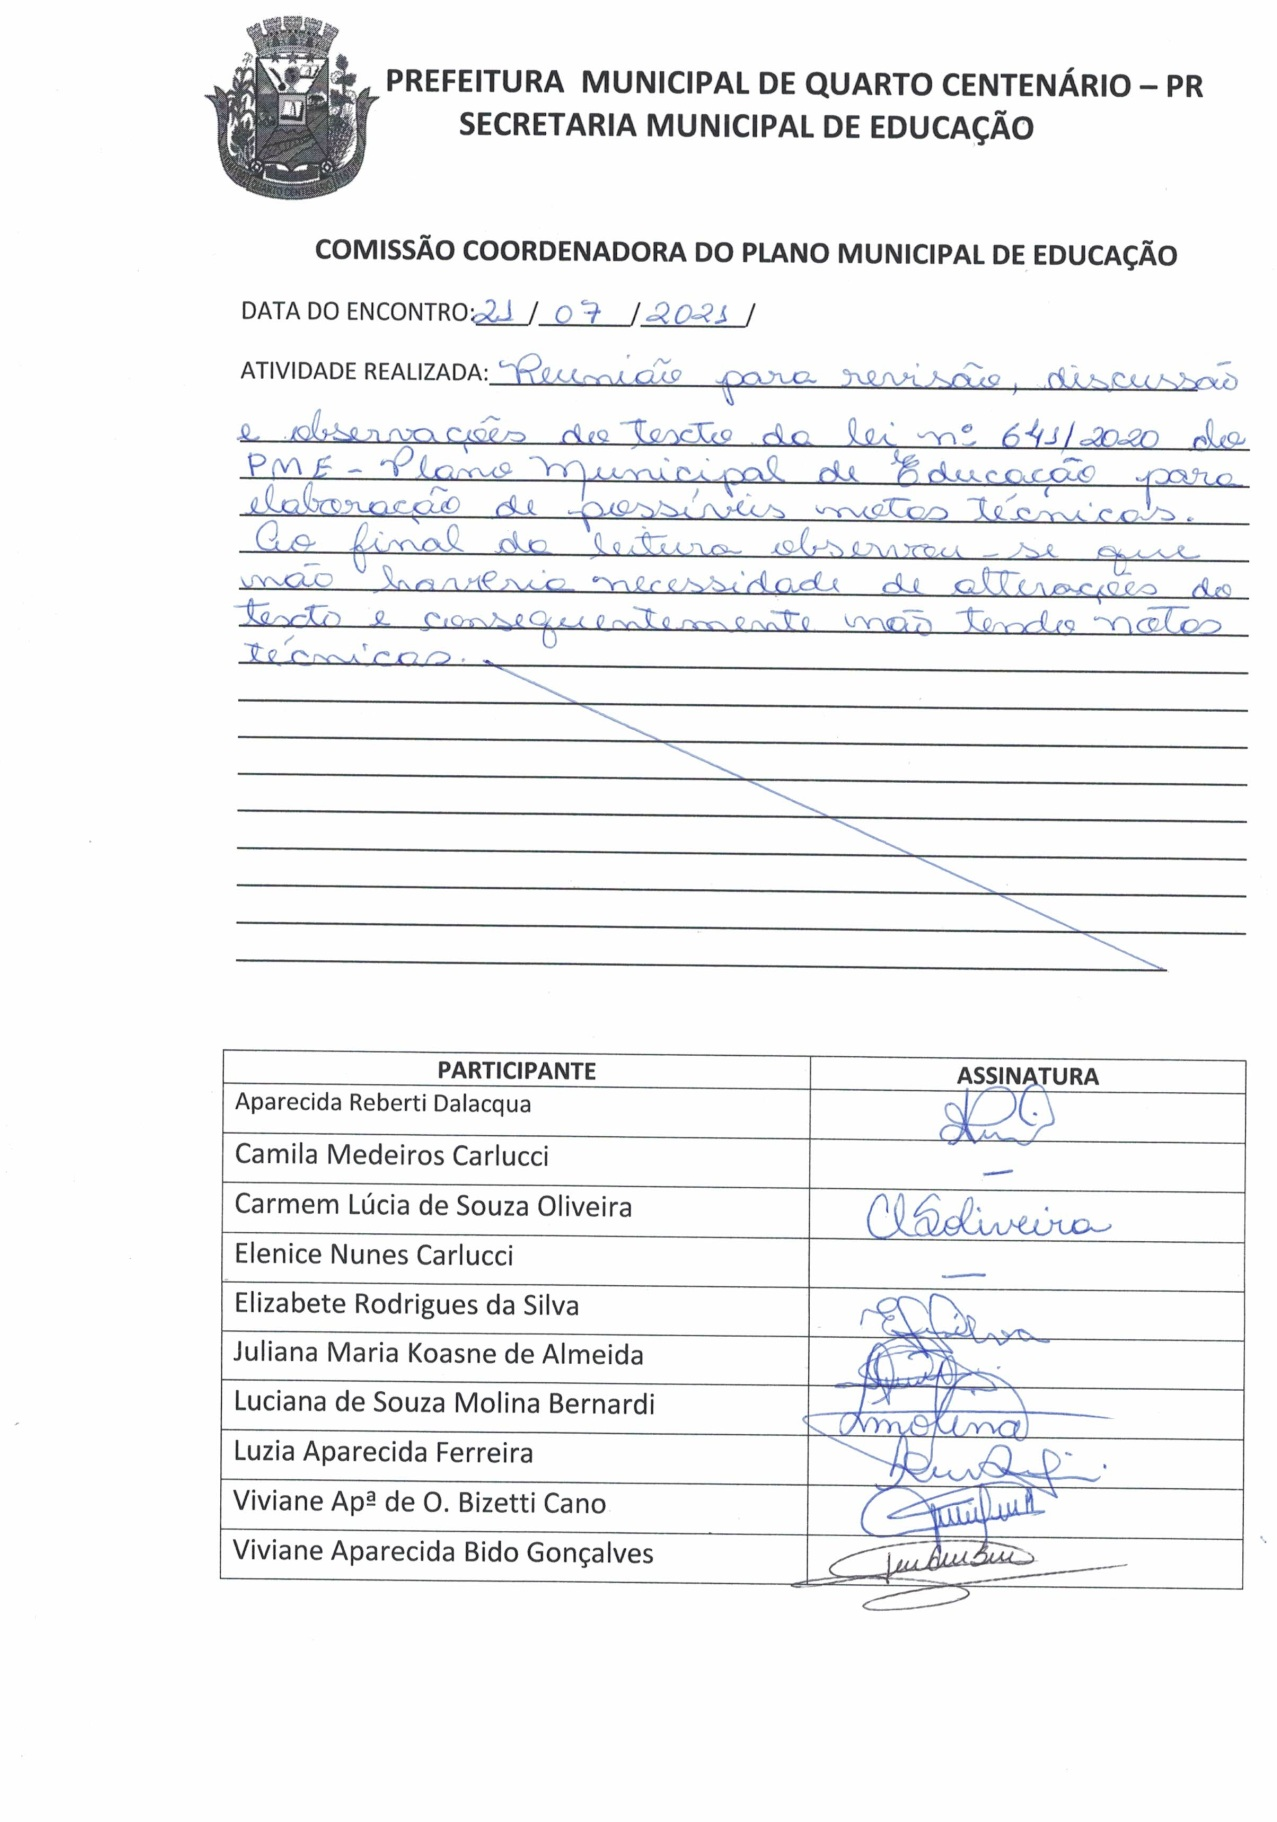 PREFEITURA MUNICIPAL DE QUARTO CENTENÁRIO – PR
SECRETARIA MUNICIPAL DE EDUCAÇÃO
QUARTO CENTENÁRIO
COMISSÃO COORDENADORA DO PLANO MUNICIPAL DE EDUCAÇÃO
DATA DO ENCONTRO: 21 / 07 / 2021 /
ATIVIDADE REALIZADA: Reunião para revisão, discussão
e observações do texto da lei nº 641/2020 do
PME - Plano Municipal de Educação para
elaboração de possíveis notas técnicas.
Ao final da leitura observou-se que
não haveria necessidade de alterações do
texto e consequentemente não tendo notas
técnicas.
PARTICIPANTE ASSINATURA
Aparecida Reberti Dalacqua
Camila Medeiros Carlucci —
Carmem Lúcia de Souza Oliveira CLSOliveira
Elenice Nunes Carlucci —
Elizabete Rodrigues da Silva
Juliana Maria Koasne de Almeida
Luciana de Souza Molina Bernardi Lmolina
Luzia Aparecida Ferreira
Viviane Apª de O. Bizetti Cano
Viviane Aparecida Bido Gonçalves